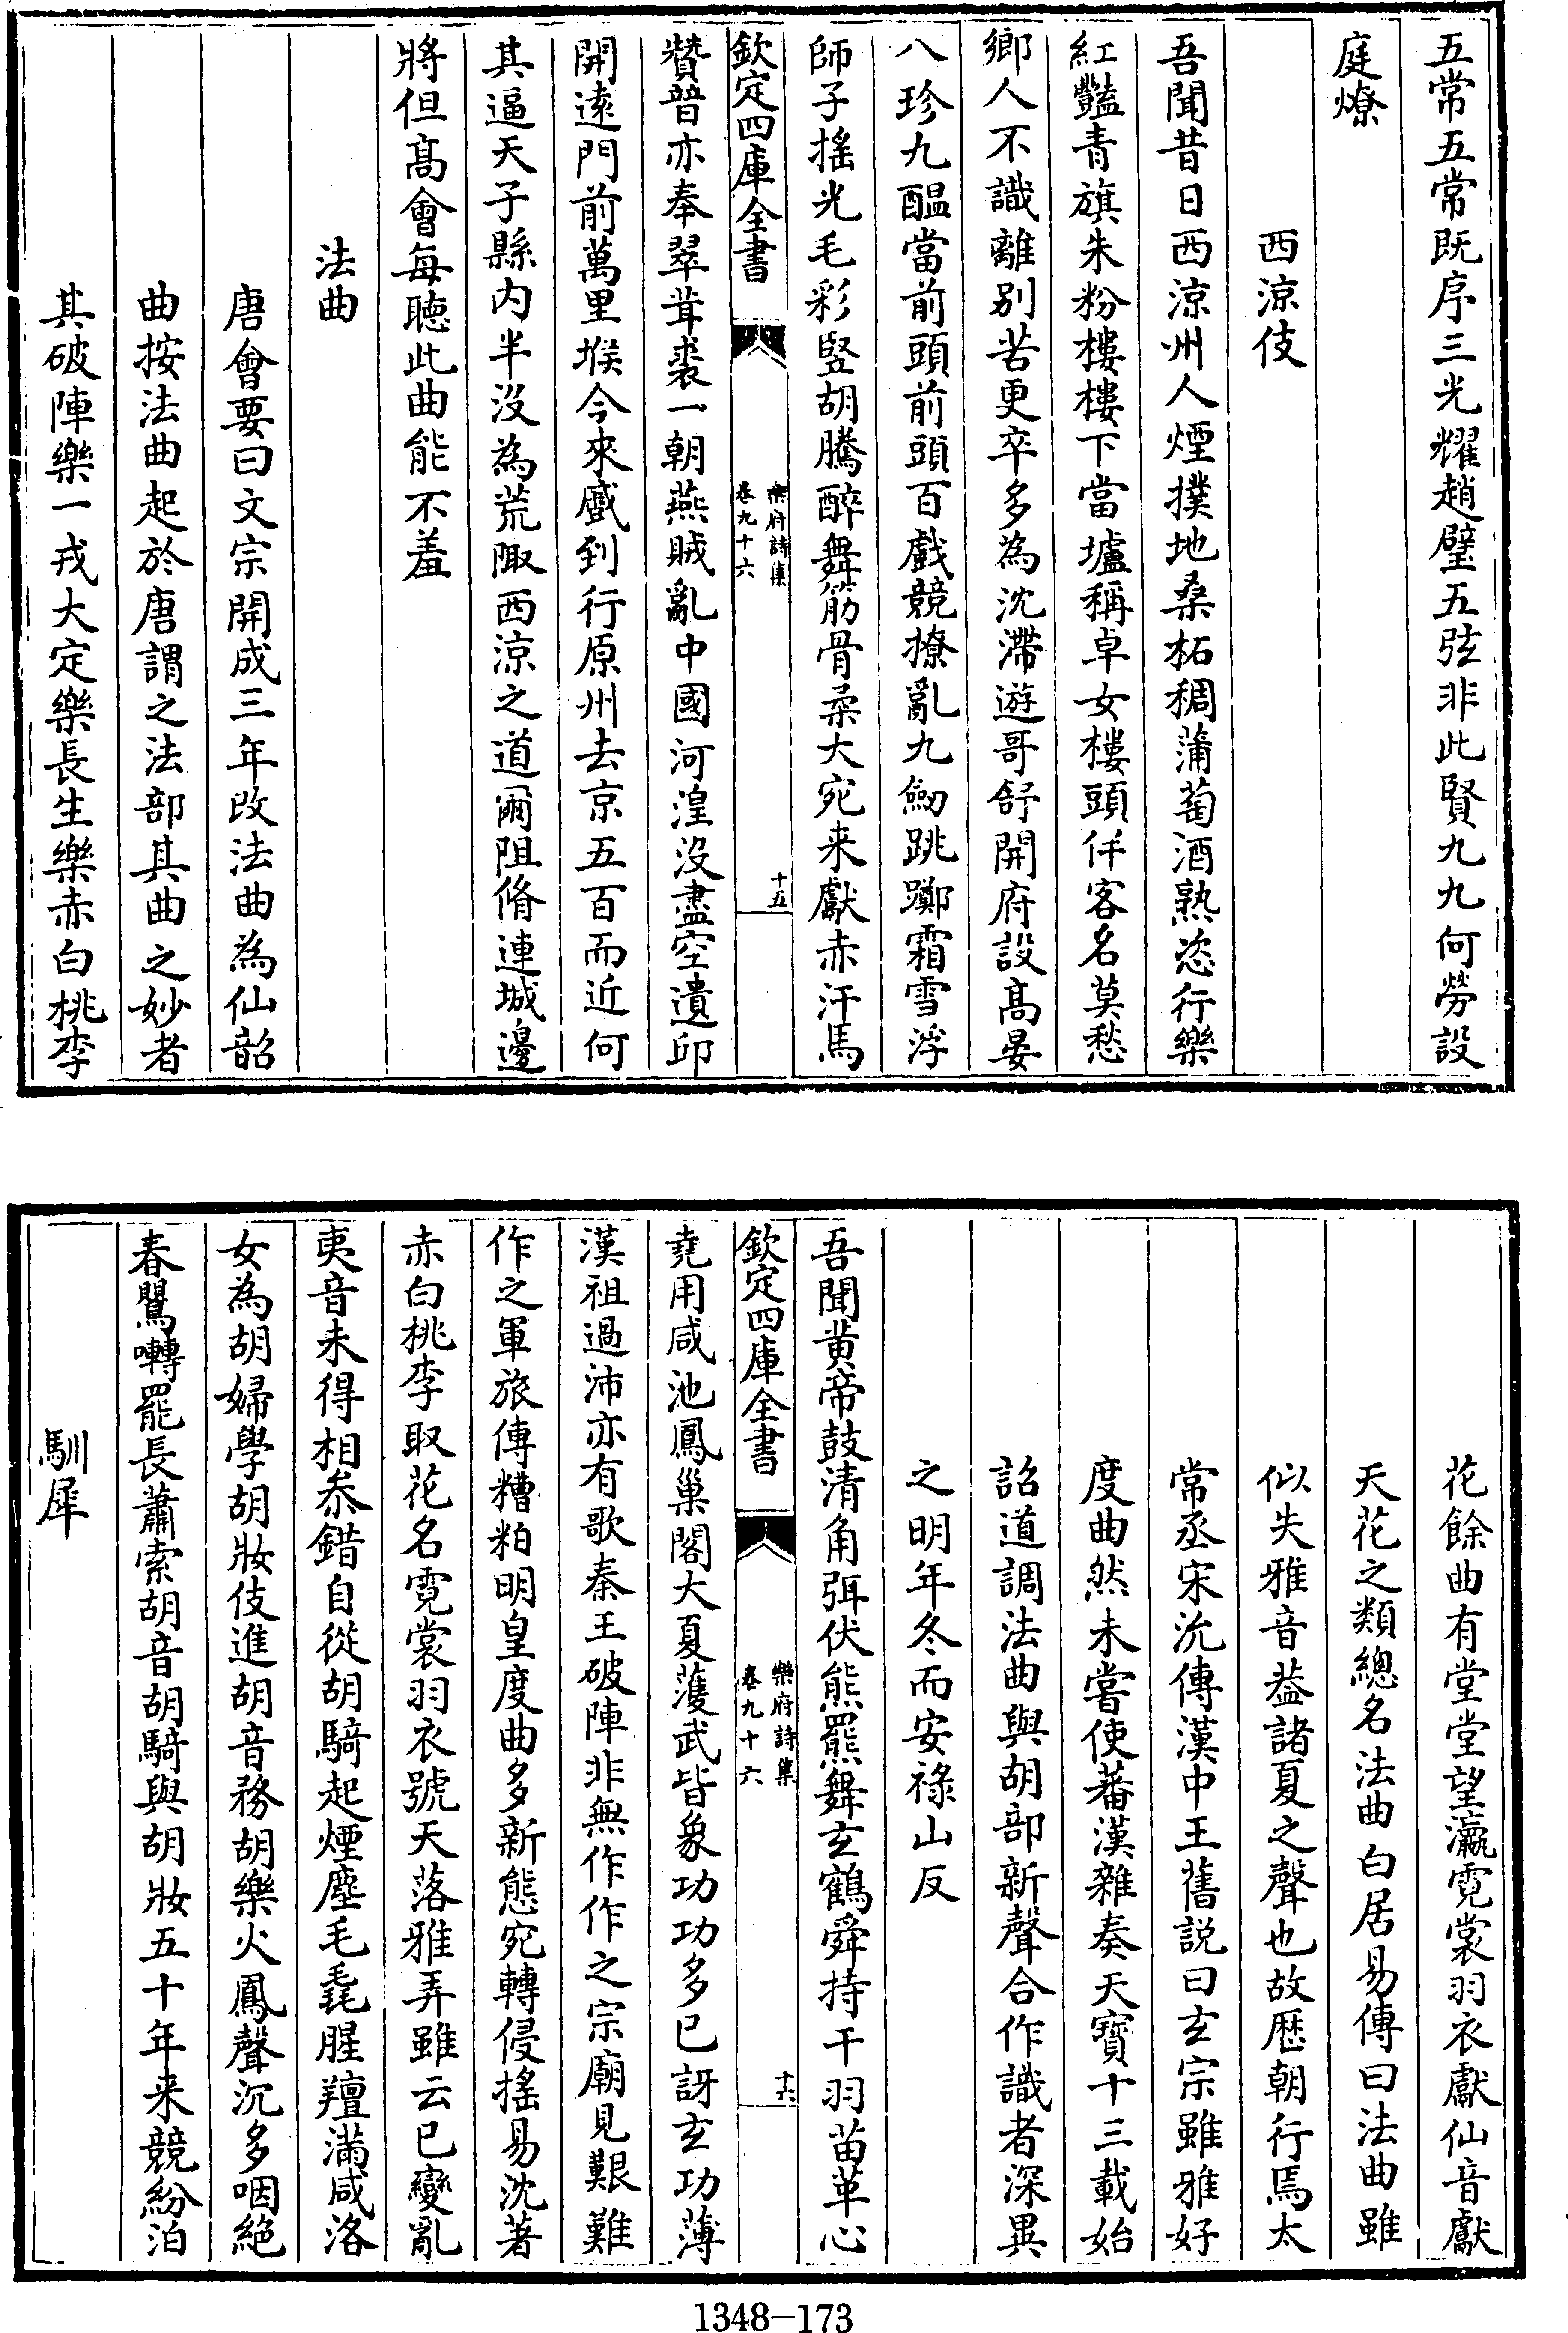 五常五常既序三光耀趙璧五弦非此賢九九何勞設
庭燎
西涼伎
吾聞昔日西涼州人煙撲地桑柘稠蒲萄酒熟恣行樂
紅豔青旗朱粉樓樓下當壚稱卓女樓頭伴客名莫愁
鄉人不識離别苦更卒多為沈滯遊哥舒開府設髙晏
八珍九醖當前頭前頭百戲競撩亂九劒跳躑霜雪浮
師子揺光毛彩竪胡騰醉舞筋骨柔大宛来獻赤汗馬
欽定四庫全書
樂府詩集
卷九十六
十五
贊普亦奉翠茸裘一朝燕賊亂中國河湟沒盡空遺邱
開逺門前萬里堠今來蹙到行原州去京五百而近何
其逼天子縣内半沒為荒陬西涼之道爾阻脩連城邊
將但髙㑹每聴此曲能不羞
法曲
唐㑹要曰文宗開成三年改法曲為仙韶
曲按法曲起於唐謂之法部其曲之妙者
其破陣樂一戎大定樂長生樂赤白桃李
花餘曲有堂堂望瀛霓裳羽衣獻仙音獻
天花之類總名法曲白居易傳曰法曲雖
似失雅音葢諸夏之聲也故厯朝行焉太
常丞宋沇傳漢中王舊説曰玄宗雖雅好
度曲然未嘗使蕃漢雜奏天寳十三載始
詔道調法曲與胡部新聲合作識者深異
之明年冬而安祿山反
吾聞黄帝鼓清角弭伏熊羆舞玄鶴舜持干羽苗革心
欽定四庫全書
樂府詩集
卷九十六
十六
堯用咸池鳳巢閣大夏濩武皆象功功多已訝玄功薄
漢祖過沛亦有歌秦王破陣非無作作之宗廟見艱難
作之軍旅傳糟粕明皇度曲多新態宛轉侵揺易沈著
赤白桃李取花名霓裳羽衣號天落雅弄雖云已變亂
夷音未得相叅錯自從胡騎起煙塵毛毳腥羶滿咸洛
女為胡婦學胡妝伎進胡音務胡樂火鳳聲沉多咽絶
春鸎囀罷長蕭索胡音胡騎與胡妝五十年来競紛泊
馴犀
1348-173